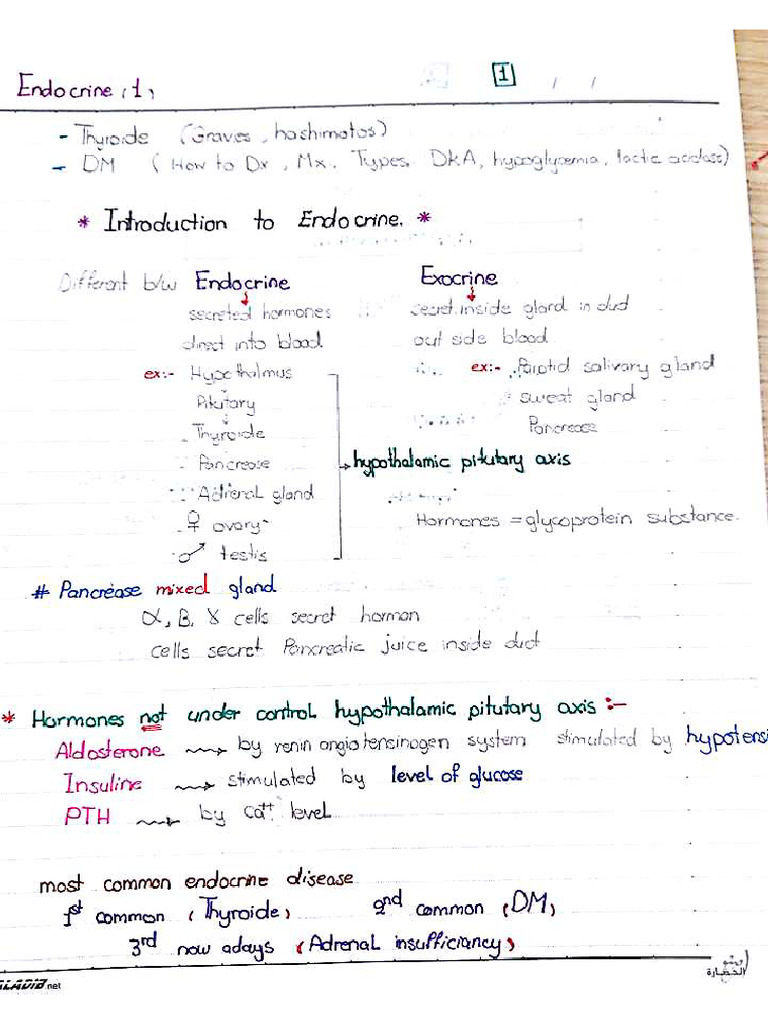 Endocrine (1)
1 / /
- Thyroide (Graves, hashimotos)
- DM (How to Dx, Mx. Types. DKA, hypoglycemia, lactic acidosis)
* Introduction to Endocrine. *
Different b/w Endocrine Exocrine
secreted hormones secret inside gland in duct
direct into blood out side blood
ex:- Hypothalmus ex:- Parotid salivary gland
Pitutary sweat gland
Thyroide Pancreas
Pancrease hypothalamic pitutary axis
Adrenal gland
♀ ovary Hormones = glycoprotein substance.
♂ testis
# Pancrease mixed gland
α, B, Ɣ cells secret hormon
cells secret Pancreatic juice inside duct
* Hormones not under control hypothalamic pitutary axis :-
Aldosterone → by renin angiotensinogen system stimulated by hypotensi
Insuline → stimulated by level of glucose
PTH → by Ca++ level
most common endocrine disease
1st common (Thyroide) 2nd common (DM)
3rd now adays (Adrenal insufficiency)
الحضارة
ALADIB.net